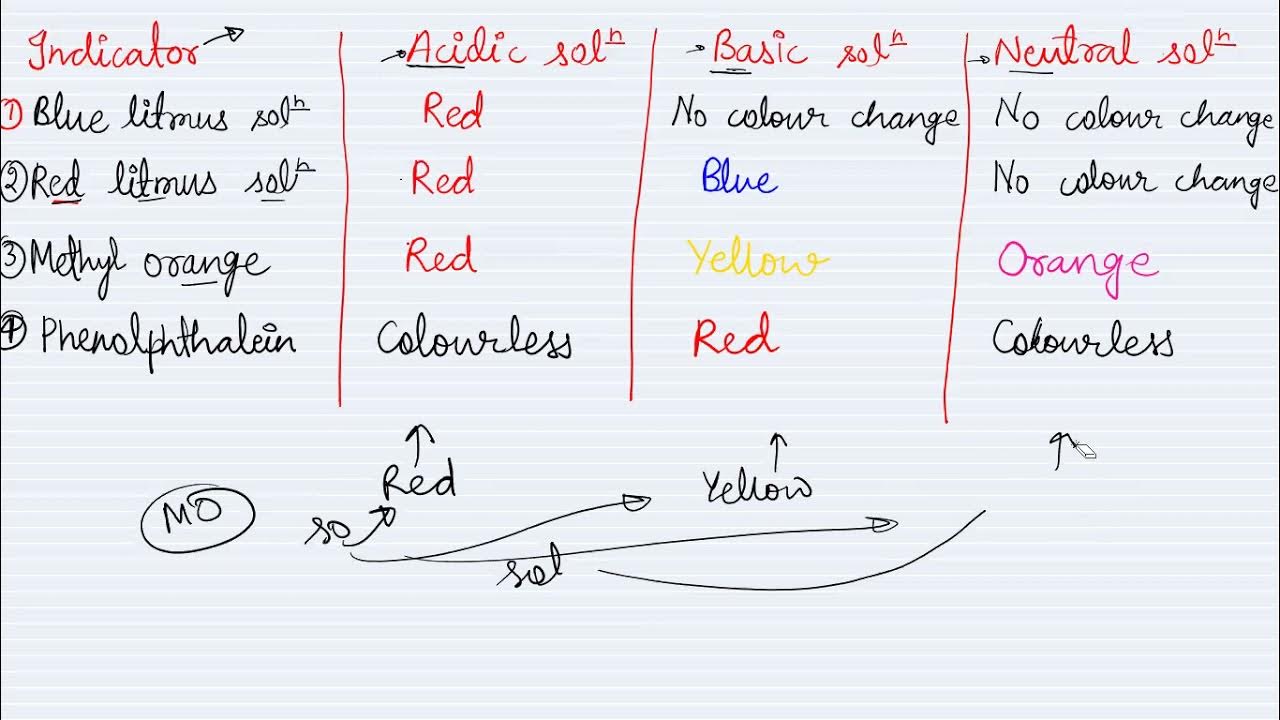 Indicator Acidic solⁿ Basic solⁿ Neutral solⁿ
① Blue litmus solⁿ Red No colour change No colour change
② Red litmus solⁿ Red Blue No colour change
③ Methyl orange Red Yellow Orange
④ Phenolphthalein Colourless Red Colourless
Red Yellow
MO so
sol